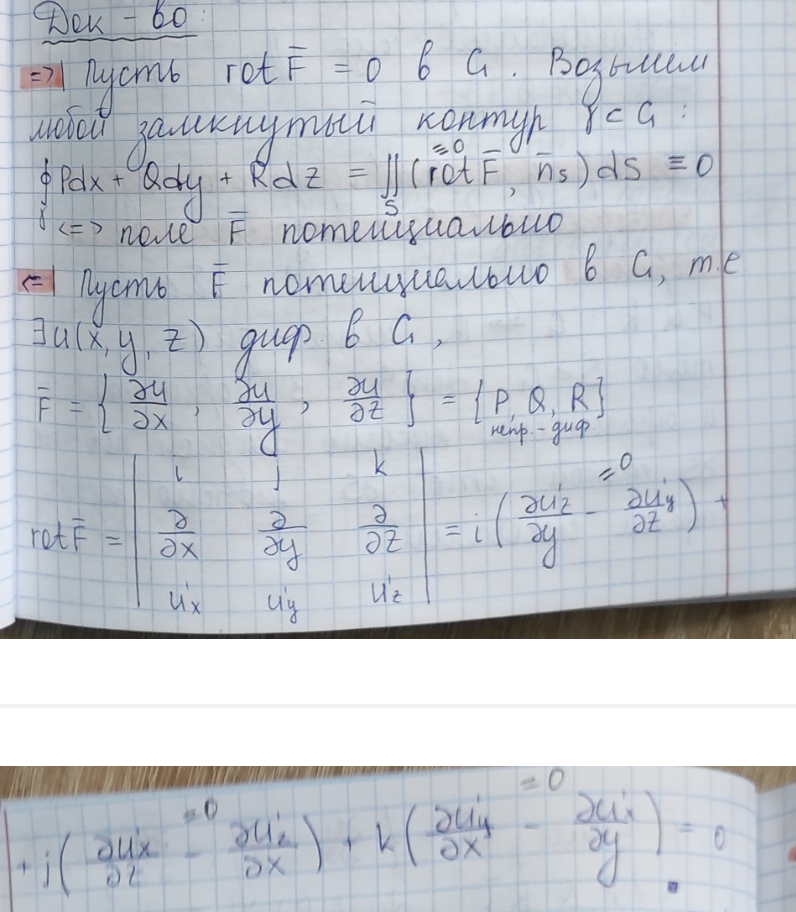 Док-во:
=>| Пусть rot F̅ = 0 в G. Возьмем
любой замкнутый контур γ ⊂ G :
∮_γ Pdx + Qdy + Rdz = ∬_S (rot F̅, n̅_s) dS ≡ 0
=0
<=> поле F̅ потенциально
<=| Пусть F̅ потенциально в G, т.е
∃ u(x, y, z) диф. в G,
F̅ = { ∂u/∂x, ∂u/∂y, ∂u/∂z } = { P, Q, R }
непр.-диф
rot F̅ = | i j k | = i ( ∂u'z/∂y - ∂u'y/∂z ) +
| ∂/∂x ∂/∂y ∂/∂z |
| u'x u'y u'z |
=0
+ j ( ∂u'x/∂z - ∂u'z/∂x ) + k ( ∂u'y/∂x - ∂u'x/∂y ) = 0
=0 =0